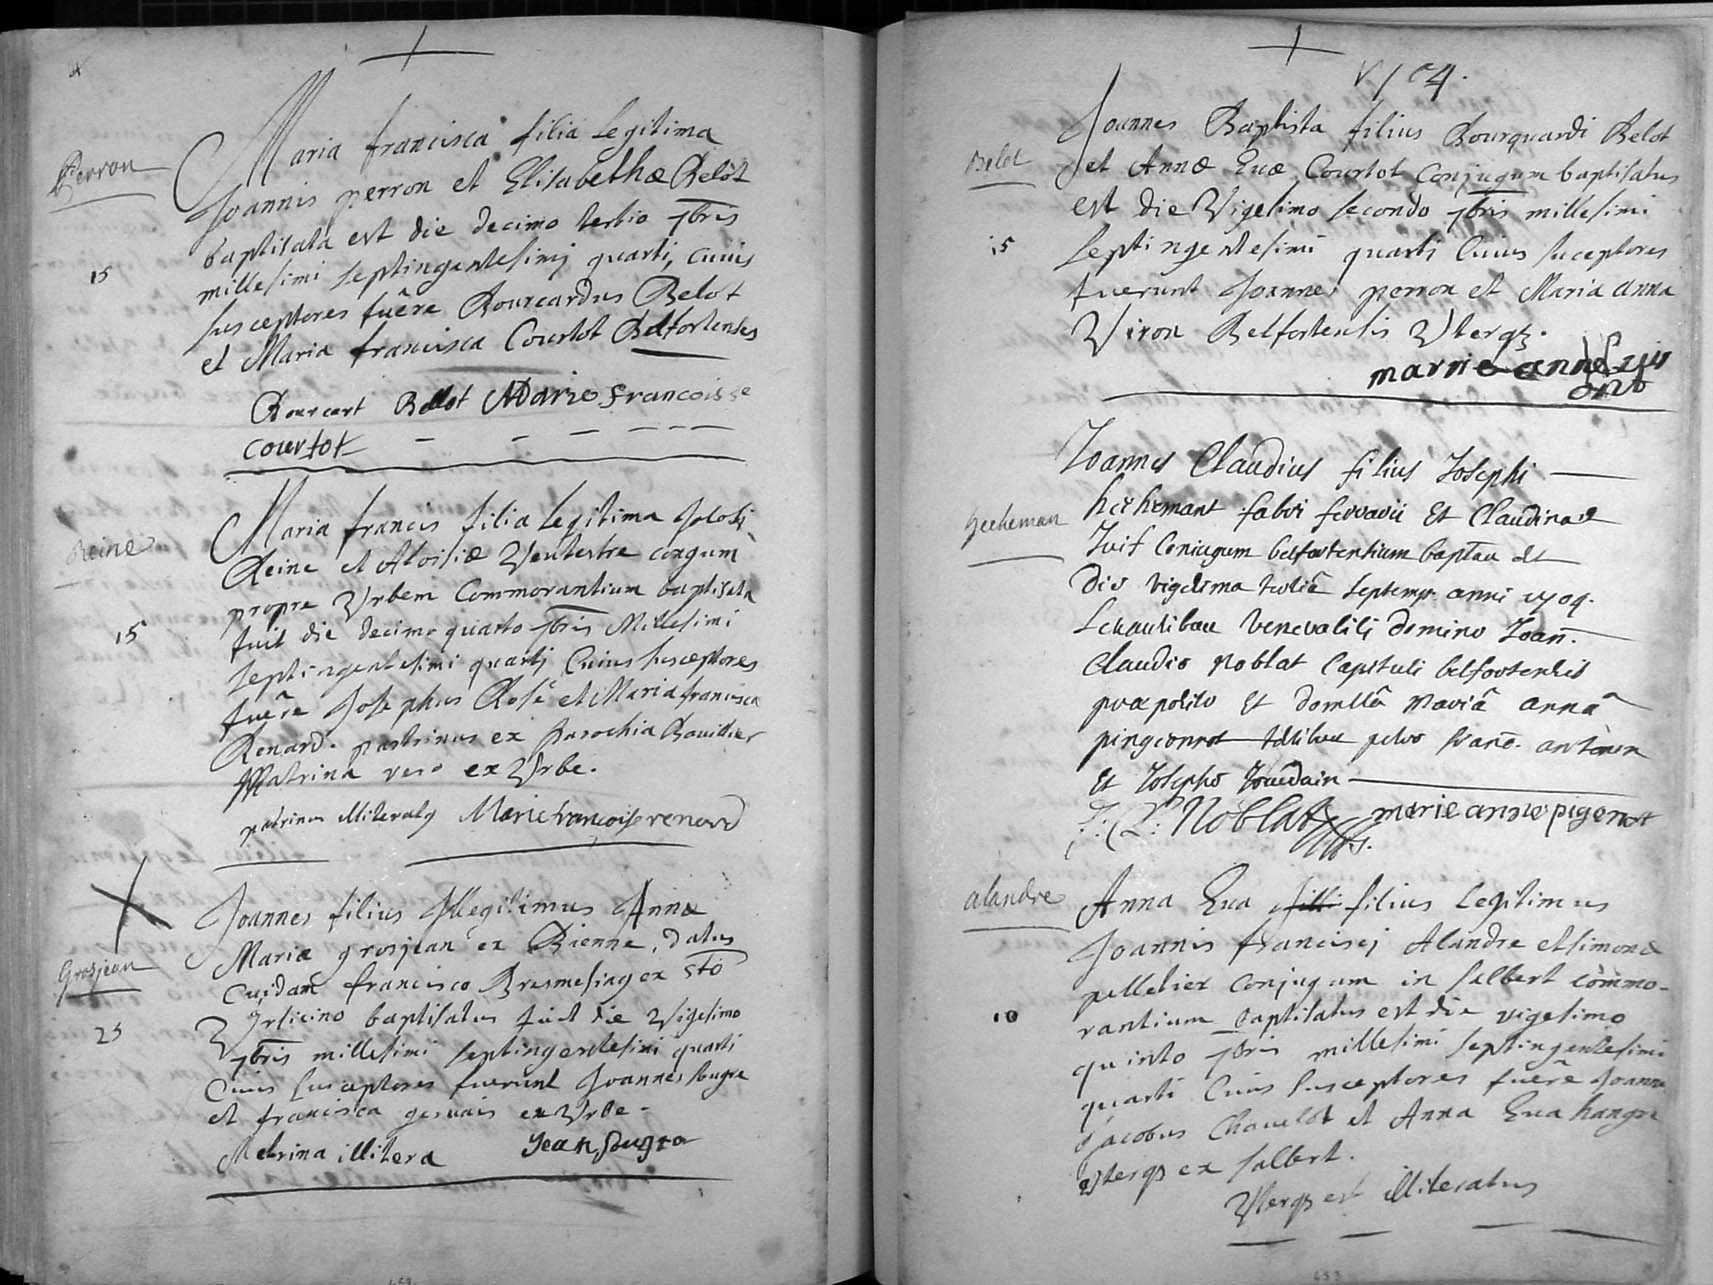 Perron
15
Maria francisca filia Legitima
Joannis perron et Elisabethæ Belot
baptisata est die decimo tertio 7bris
millesimi septingentesimi quarti, cuius
susceptores fuêre Bourcardus Belot
et Maria francisca Courtot Belfortenses
Bourcart Belot Marie francoisse
courtot
Reine
15
Maria francis filia Legitima
Reine et Aloisiæ
propre Vrbem Commorantium baptisata
fuit die decimo quarto 7bris Millesimi
septingentesimi quarti Cuius susceptores
fuêre Josephus Rosé et Maria francisca
Renard. patrinus ex parochia
Matrina vero ex Vrbe.
patrinus illiteratus Marie francoise renard
Grosjean
25
Joannes filius Illegitimus Annæ
Mariæ grosjean ex Bienne, datus
Cuidam francisco Bresmesing ex Sto
Vrsicino baptisatus fuit die Vigesimo
7bris millesimi septingentesimi quarti
Cuius susceptores fuerunt Joannes sougre
et francisca gervais ex Vrbe.
Metrina illitera Jean Sougra
1704.
Belot
15
Joannes Baptista filius Bourquardi Belot
et Annæ Euæ Courtot Conjugum baptisatus
est die Vigesimo secondo 7bris millesimi
septingentesimi quarti Cuius suceptores
fuerunt Joannes perron et Maria anna
Viron Belfortensis Vterq.
marrie anne
Hecheman
Joannes Claudius filius Josephi
hechemant fabri ferrarii Et Claudinae
Juif Coniugum belfortentium bapt
Die vigesima tertiâ septemr. anni 1704.
Levantibus Venerabili domino Joan.
Claudio Noblat Capituli belfortensis
præposito Et domllâ Mariâ annâ
pingeonnot testibus petro franc. antonin
Et Josepho Jourdain
J: C: Noblat marie anne pigenot
alandre
10
Anna Eua filius Legitimus
Joannis francisci Alandre et simonæ
pelletier Conjugum in salbert commo-
rantium baptisatus est die vigesimo
quinto 7bris millesimi septingentesimi
quarti Cuius susceptores fuêre Joannes
Jacobus Chauelot et Anna Eua hangre
Vterqs ex salbert.
Vterqs est illiteratus
653